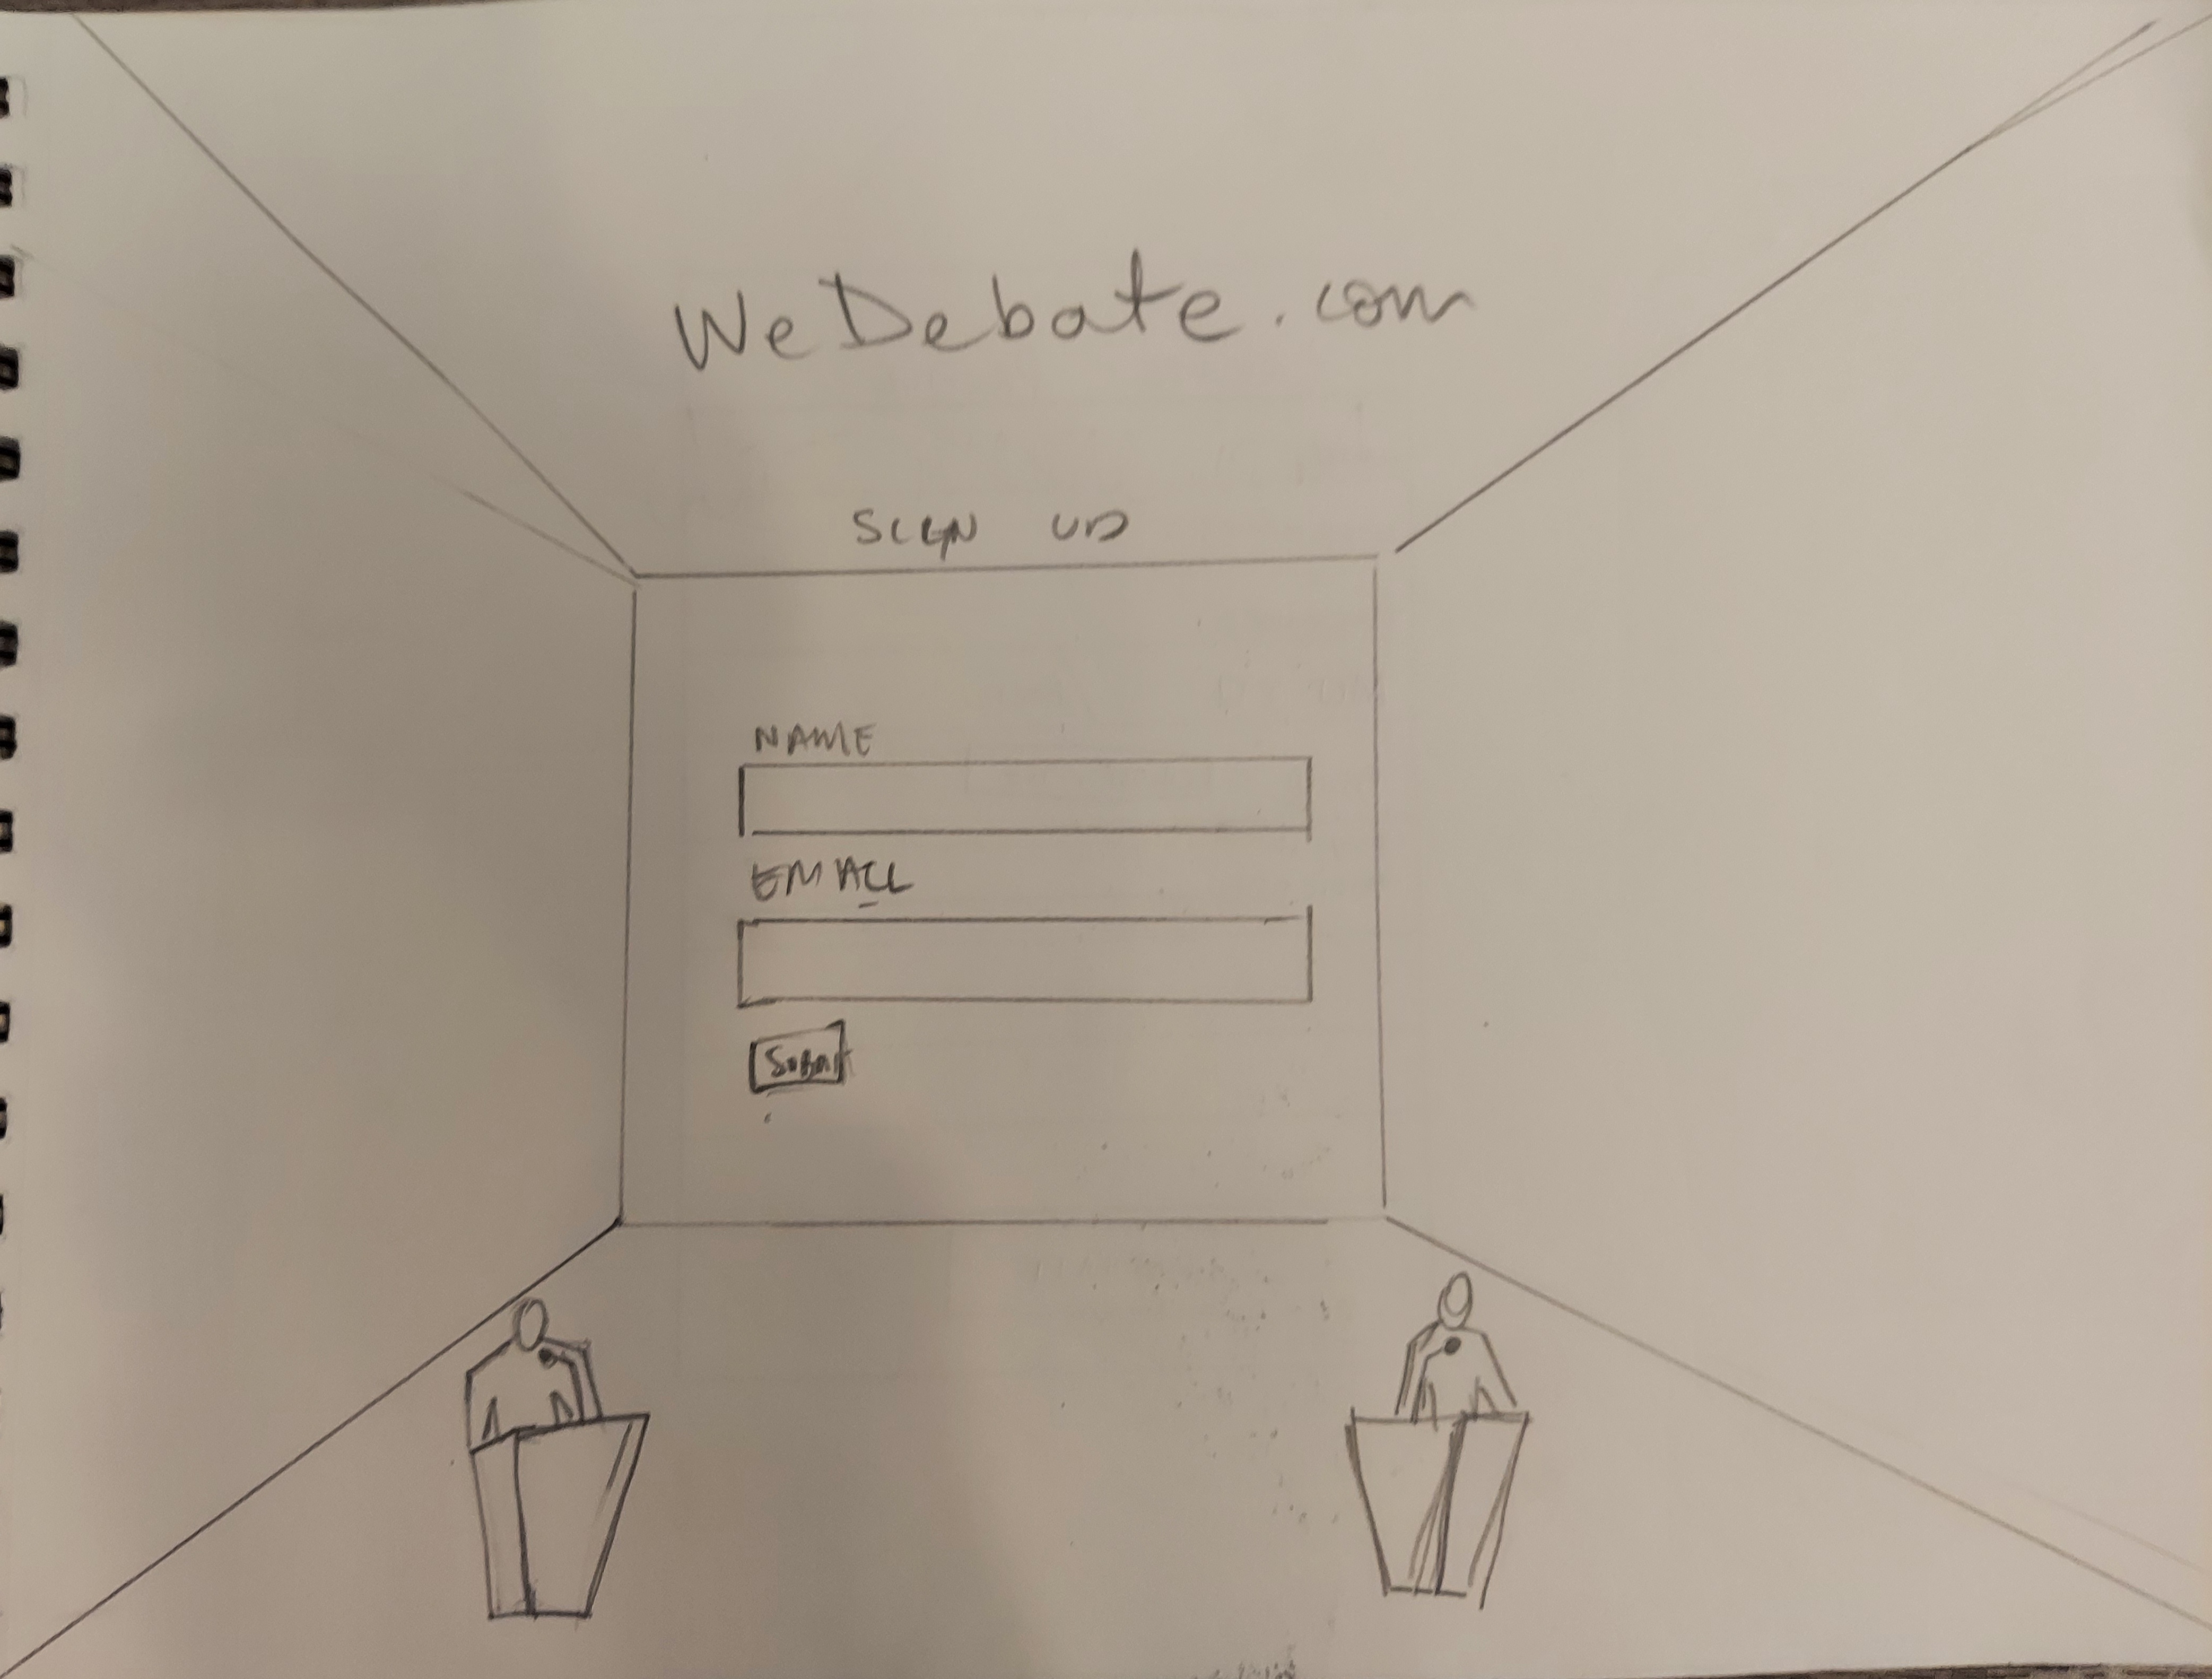 WeDebate.com
SIGN UP
NAME
EMAIL
Submit